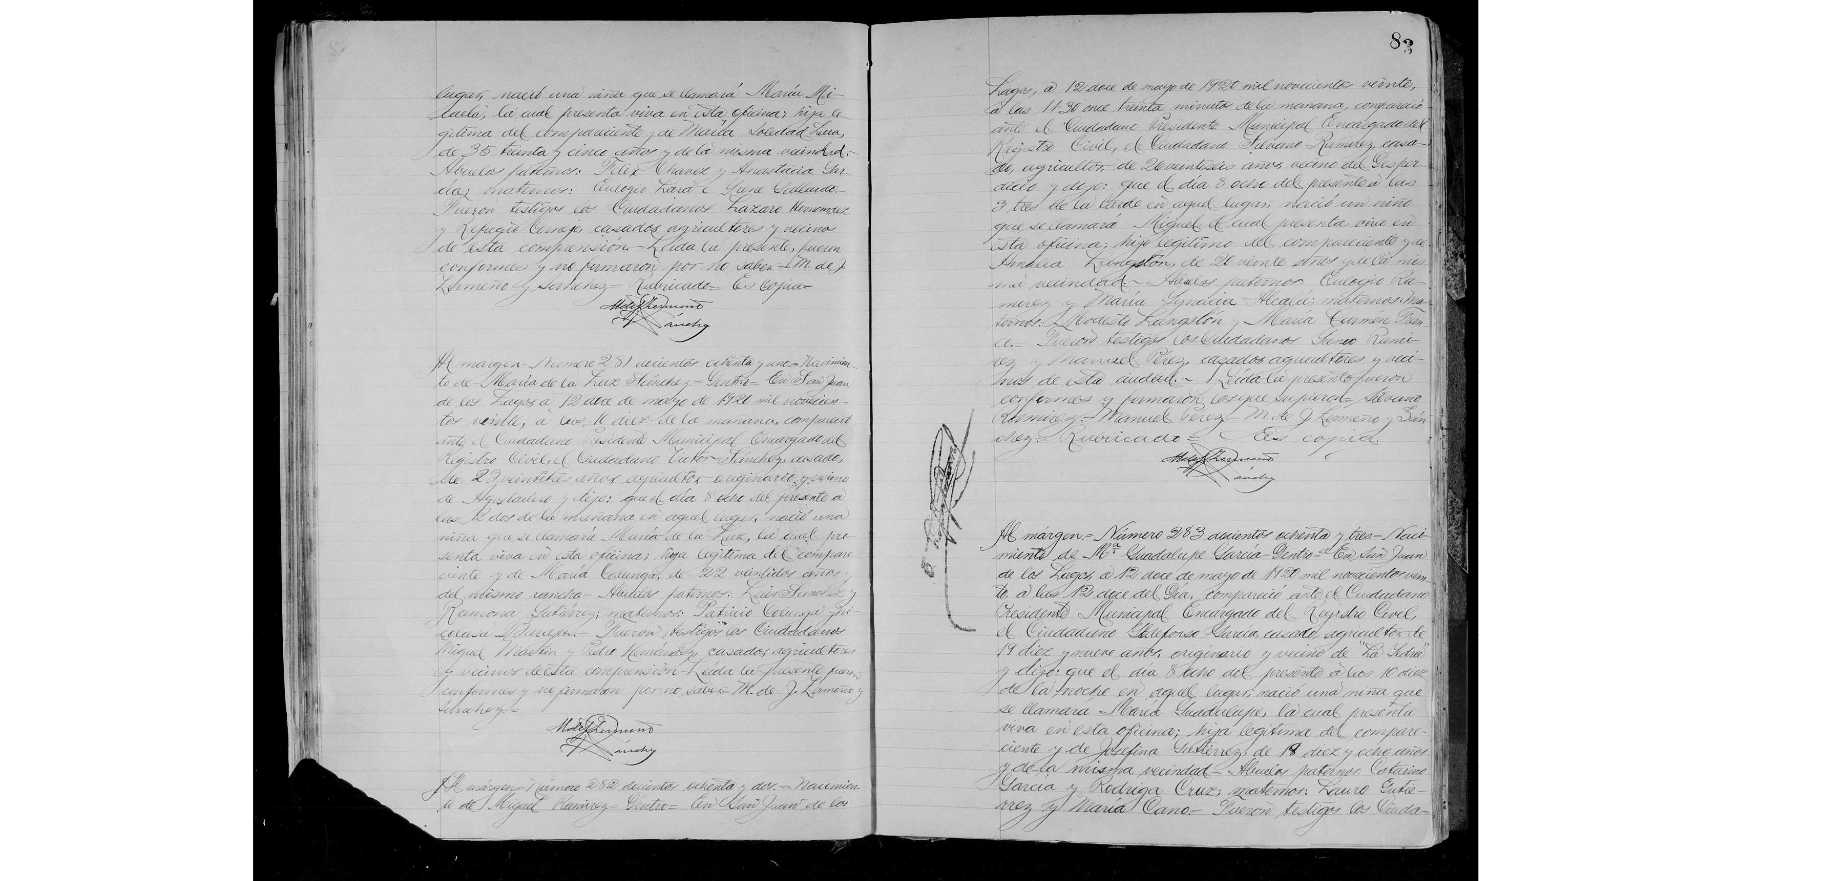 lugar, nació una niña que se llamará María Mi-
caela, la cual presenta viva en esta oficina; hija le-
gitima del compareciente y de María Soledad Lara,
de 35 treinta y cinco años y de la misma vecindad.-
Abuelos paternos: Felix Chavez y Anastacia Gar-
cía; maternos: Eulogio Lara é Irene Galindo.-
Fueron testigos los Ciudadanos Lazaro Hernandez
y Refugio Cornejo, casados, agricultores y vecinos
de esta comprensión.- Leida la presente, fueron
conformes y no firmaron por no saber.- M. de J.
Zermeño y Sanchez= Rubricado= Es copia=
M de J Zermeño
y Sánchez
Al margen= Número 281 docientos ochenta y uno= Nacimien-
to de= María de la Luz Sánchez= Dentro= En San Juan
de los Lagos, a 12 doce de mayo de 1920 mil novecien-
tos veinte, á las 10 diez de la mañana, compareció
ante el Ciudadano Presidente Municipal Encargado del
Registro Civil, el Ciudadano Victor Sánchez, casado,
de 23 veintitres años, agricultor, originario y vecino
de y dijo: que el día 8 ocho del presente a
las 2 dos de la mañana en aquel lugar, nació una
niña que se llamará María de la Luz, la cual pre-
senta viva en esta oficina; hija legitima del compare-
ciente y de María Colunga, de 22 veintidos años y
del mismo rancho.- Abuelos paternos: Luis Sanchez y
Ramona Gutiérrez; maternos: Patricio Colunga y Ni-
colasa Fueron testigos los Ciudadanos
Miguel Martin y Pedro Hernandez, casados, agricultores
y vecinos de esta comprensión.- Leida la presente fueron
conformes y no firmaron por no saber= M. de J. Zermeño y
Sánchez=
M de J Zermeño
y Sánchez
Al márgen= Número 282 docientos ochenta y dos.= Nacimien-
to de Miguel Ramirez= Dentro= En San Juan de los
83
Lagos, a 12 doce de mayo de 1920 mil novecientos veinte,
a las 11-30 once treinta minutos de la mañana, compareció
ante el Ciudadano Presidente Municipal Encargado del
Registro Civil, el Ciudadano Silvano Ramirez, casa-
do, agricultor, de 26 veintiseis años, vecino del
y dijo: que el día 8 ocho del presente á las
3 tres de la tarde en aquel lugar, nació un niño
que se llamará Miguel el cual presenta vivo en
esta oficina; hijo legitimo del compareciente y de
Amelia Langston, de 20 veinte años y de la mis-
ma vecindad.- Abuelos paternos: Eulogio Ra-
mirez y María Ignacia Alcalá; maternos: Ma-
ternos: Modesto Langstón y María Carmen
Fueron testigos los Ciudadanos Rami-
rez y Manuel Pérez, casados, agricultores y veci-
nos de esta ciudad.- Leida la presente fueron
conformes y firmaron los que supieron= Silvano
Ramirez= Manuel Pérez= M. de J. Zermeño y Sán-
chez= Rubricado= Es copia.
M de J Zermeño
y Sánchez
Al márgen.= Número 283 docientos ochenta y tres= Naci-
miento de Ma Guadalupe García= Dentro= En San Juan
de los Lagos, á 12 doce de mayo de 1920 mil novecientos vein-
te, á las 12 doce del día, compareció ante el Ciudadano
Presidente Municipal Encargado del Registro Civil,
el Ciudadano Ildefonso García, casado, agricultor, de
19 diez y nueve años, originario y vecino de "La Sidra"
y dijo: que el día 8 ocho del presente á las 10 diez
de la noche en aquel lugar, nació una niña que
se llamara María Guadalupe, la cual presenta
viva en esta oficina; hija legitima del compare-
ciente y de Josefina Gutierrez, de 18 diez y ocho años
y de la misma vecindad.- Abuelos paternos: Catarino
García y Rodriga Cruz; maternos: Lauro Gutie-
rrez y María Cano.- Fueron testigos los Ciuda-